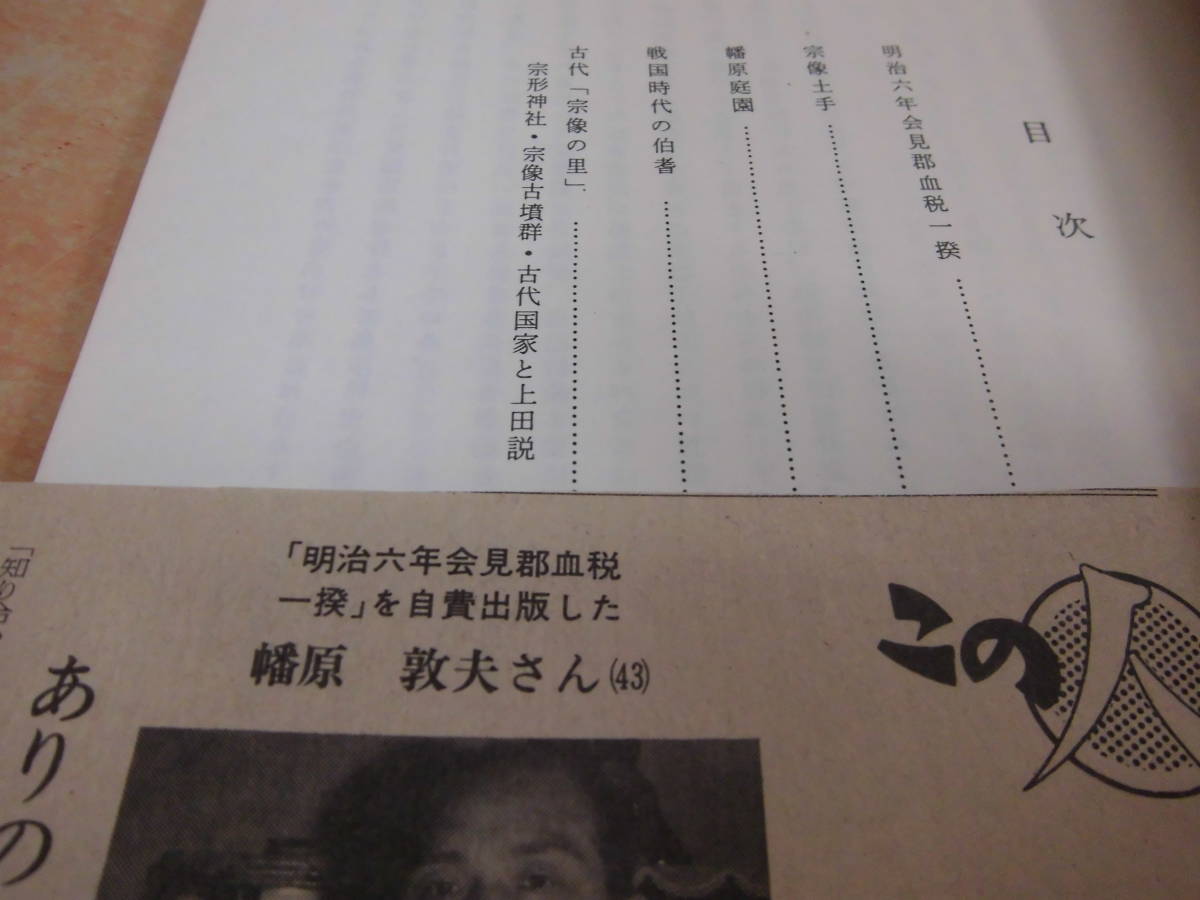 目次
明治六年会見郡血税一揆
宗像土手
幡原庭園
戦国時代の伯耆
古代「宗像の里」
宗形神社・宗像古墳群・古代国家と上田説
この人
「明治六年会見郡血税
一揆」を自費出版した
幡原 敦夫さん(43)
ありの
「知り合